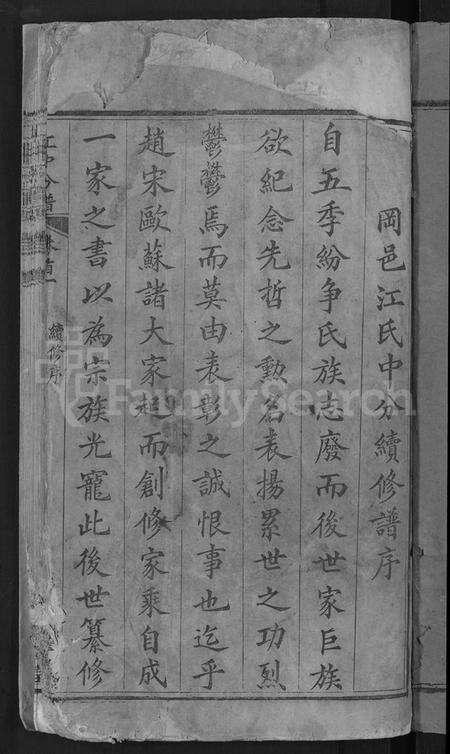 岡邑江氏中分續修譜序
自五季紛争氏族志廢而後世家巨族
欲紀念先哲之勳名表揚累世之功烈
鬱鬱焉而莫由表彰之誠恨事也迄乎
趙宋歐蘇諸大家起而創修家乘自成
一家之書以為宗族光寵此後世纂修
續修序
FamilySearch